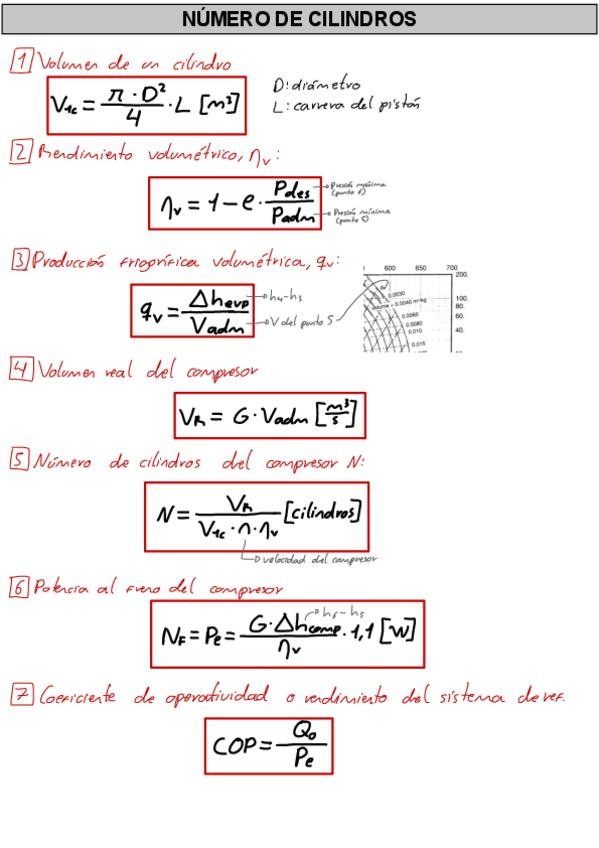 NÚMERO DE CILINDROS
1 Volumen de un cilindro
V1c = π · D² / 4 · L [m³]
D: diámetro
L: carrera del pistón
2 Rendimiento volumétrico, ηv:
ηv = 1 - e · Pdes / Padm
Presión máxima
Presión mínima
3 Producción frigorífica volumétrica, qv:
qv = Δhevp / Vadm
h4-h3
V del punto 5
600 700
200.
100.
80.
60.
40.
0.0030
volume = 0.0040 m³/kg
0.0060
0.0080
0.010
0.015
4 Volumen real del compresor
VR = G · Vadm [m³/s]
5 Número de cilindros del compresor N:
N = VR / V1c · n · ηv [cilindros]
velocidad del compresor
6 Potencia al freno del compresor
h6-h5
NF = Pe = G · Δhcomp / ηv · 1,1 [W]
7 Coeficiente de operatividad o rendimiento del sistema de ref.
COP = Q0 / Pe